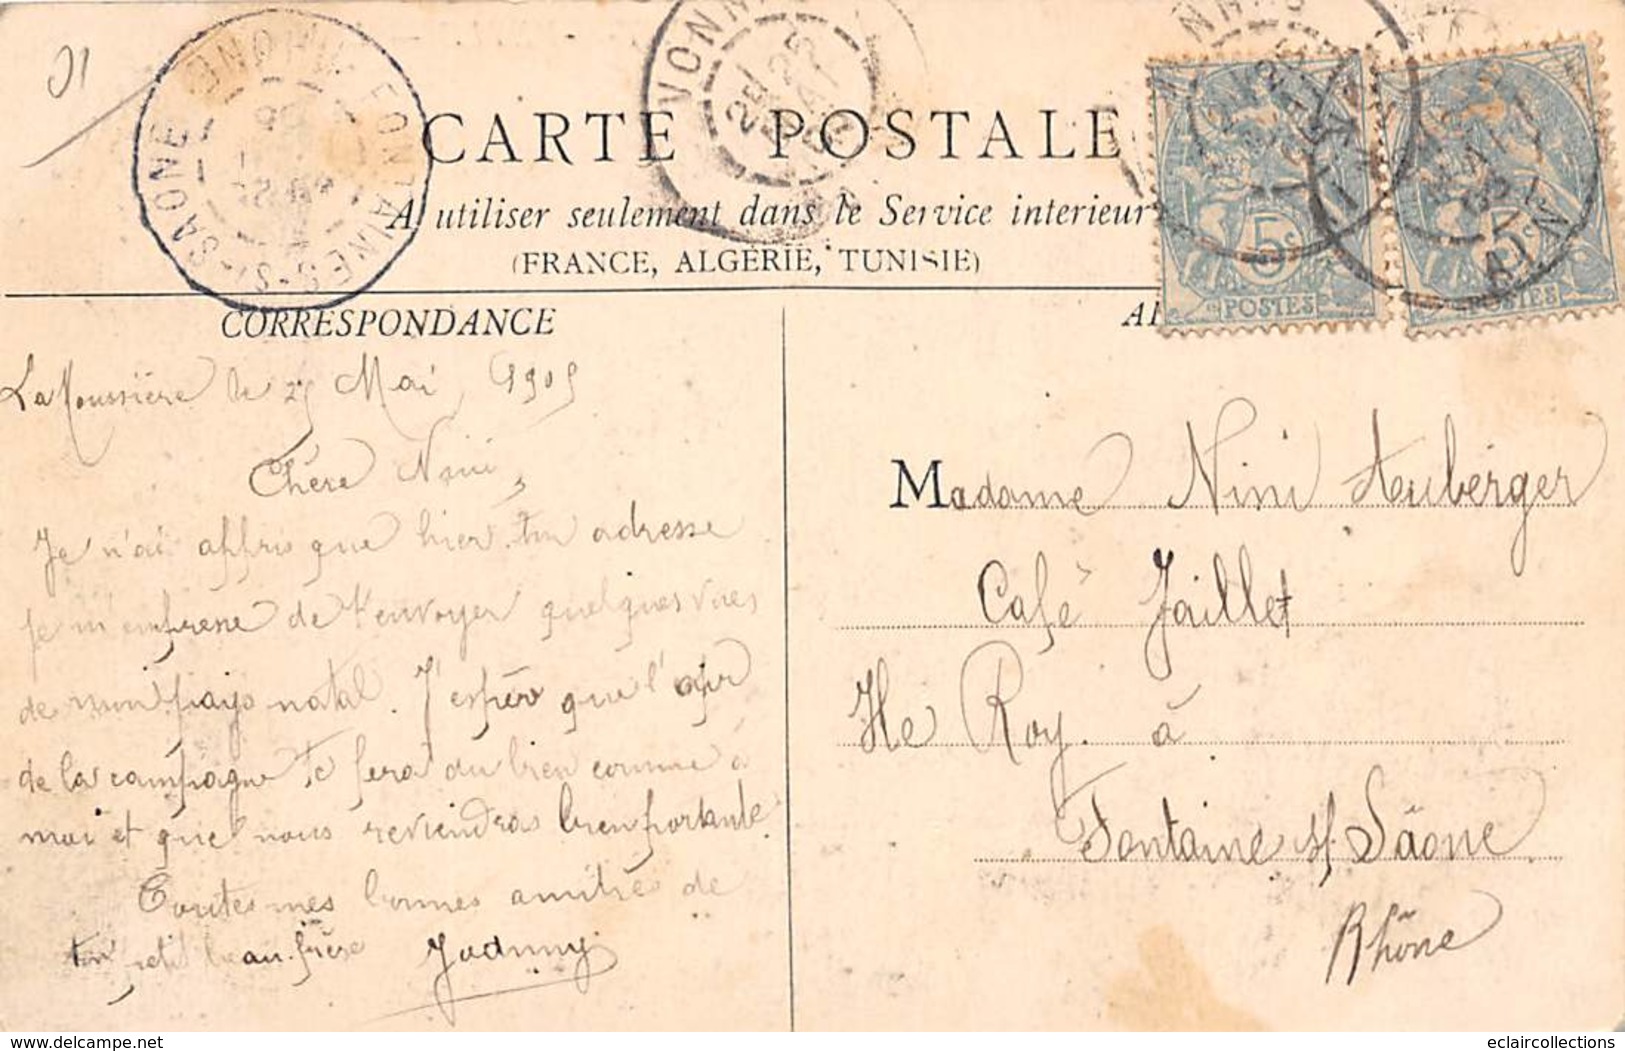 01
FONTAINES-St-SAONE RHONE
VONNAS
CARTE POSTALE
A utiliser seulement dans le Service interieur
(FRANCE, ALGERIE, TUNISIE)
5c
POSTES
5
POSTES
AIN
CORRESPONDANCE
La Moussière le 25 Mai 1905
Chère Nini,
Je n'ai appris que hier ton adresse
je m'empresse de t'envoyer quelques vues
de mon pays natal. J'espère que l'air
de la campagne te fera du bien comme à
moi et que nous reviendras bien portante.
Toutes mes bonnes amitiés de
ton petit beau-frère
Madame Nini Auberger
Café Jaillet
He Roy. à
Fontaine s/ Sâone
Rhône
www.delcampe.net
eclaircollections